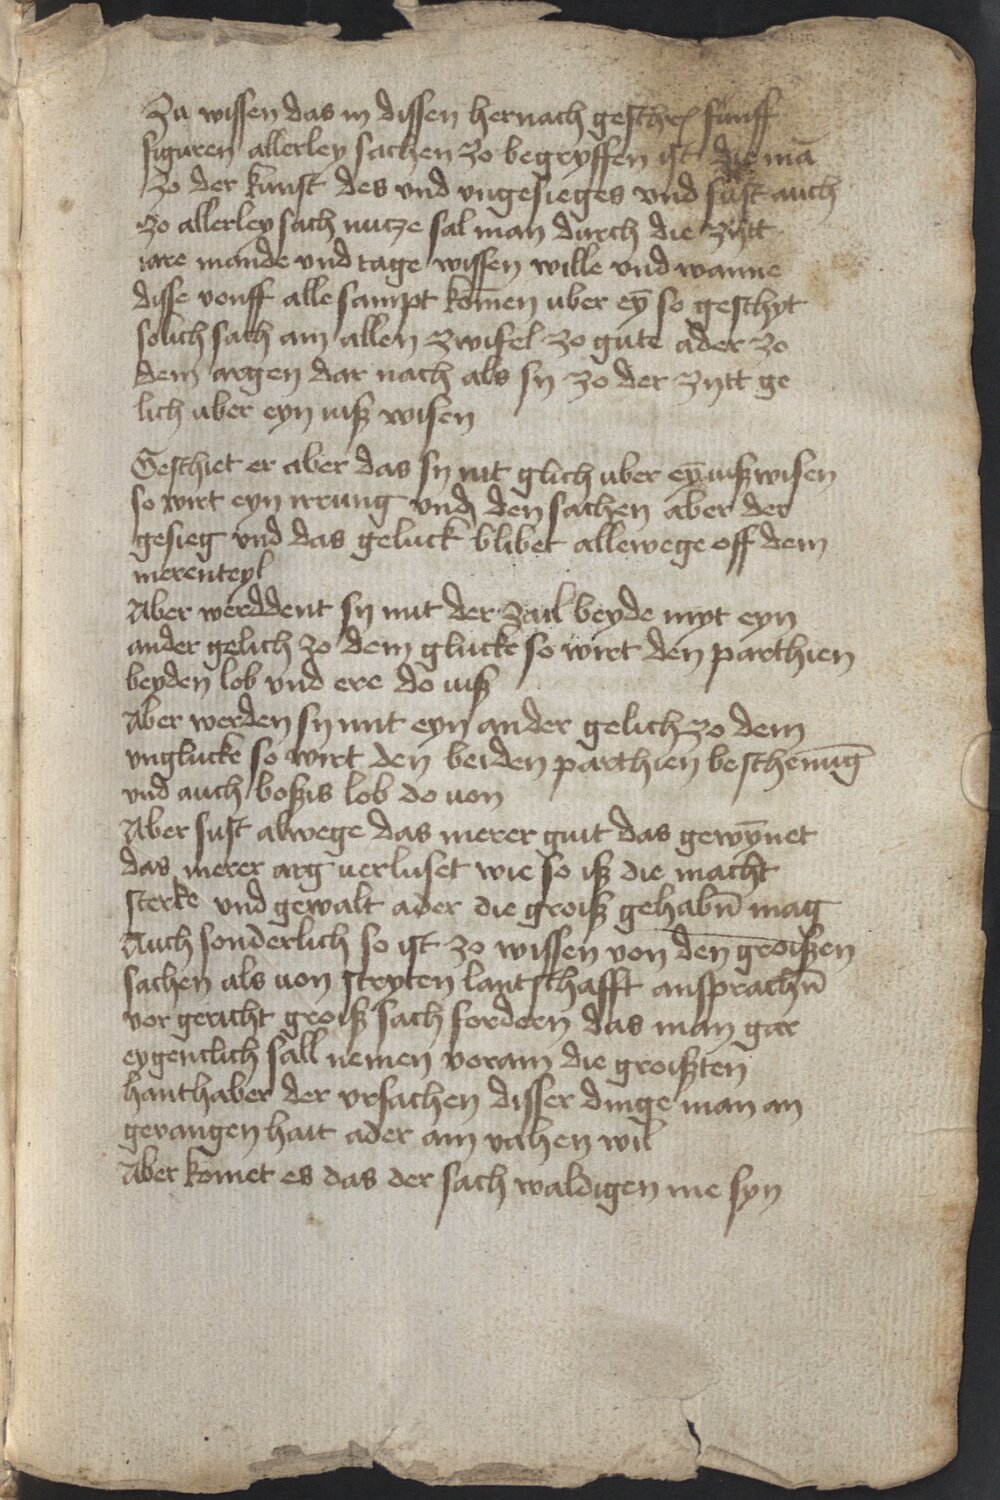 Zu wissen das in dissen hernach geschr funff
figuren allerley sachen zo begryffen ist die mā
zo der kunst des vnd vngesieges vnd sust auch
zo allerley sach nutze sal man durch die zijtt
iare mande vnd tage wissen wille vnd wanne
disse vonff alle sampt kōmen uber eȳ so geschyt
solich sach am allen zwifel zo gute ader zo
dem argen dar nach als sy zo der zytt ge
lich uber eyn uiß wisen
Geschiet er aber das sy nit glich uber eȳ uiß wisen
so wirt eyn irrung vnd den sachen aber der
gesieg vnd das geluck blibet allewege off dem
merenteyl
Aber werddent sy mit der zail beyde myt eyn
ander gelich zo dem glucke so wirt den parthien
beyden lob vnd ere do uiß
Aber werden sy mit eyn ander gelich zo dem
vnglucke so wirt den beiden parthien beschemūg
vnd auch boßis lob do uon
Aber sust alwege das merer guit das gewȳnet
das merer arg uerluset wie so iß die macht
sterke vnd gewalt ader die groiß gehabn̄ mag
Auch sonderlich so ist zo wissen von den groißen
sachen als uon stryten lantschafft ansprachn̄
vor gericht groiß sach fordern das man gar
eygentlich sall nemen voram die groißten
hanthaber der vrsachen disser dinge man an
gevangen hait ader am vahen wil
Aber komet es das der sach waldigen me syn